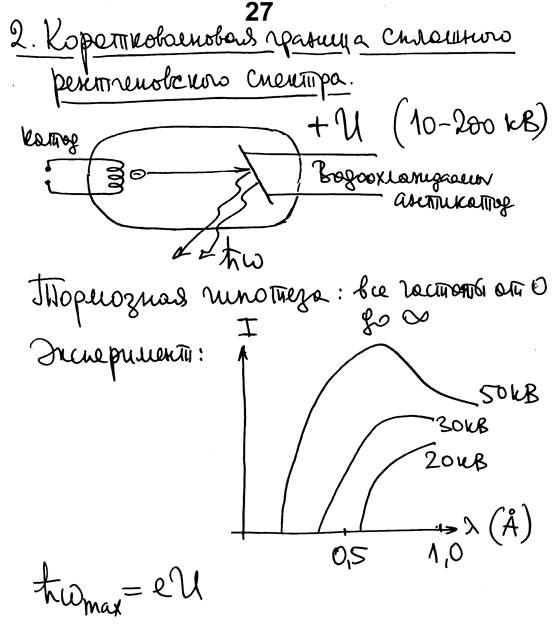 27
2. Коротковолновая граница сплошного
рентгеновского спектра.
катод
+U (10-200 кВ)
Водоохлаждаемый
антикатод
ħω
Тормозная гипотеза: все частоты от 0
до ∞
Эксперимент:
I
50кВ
30кВ
20кВ
λ (Å)
0,5 1,0
ħωmax = eU